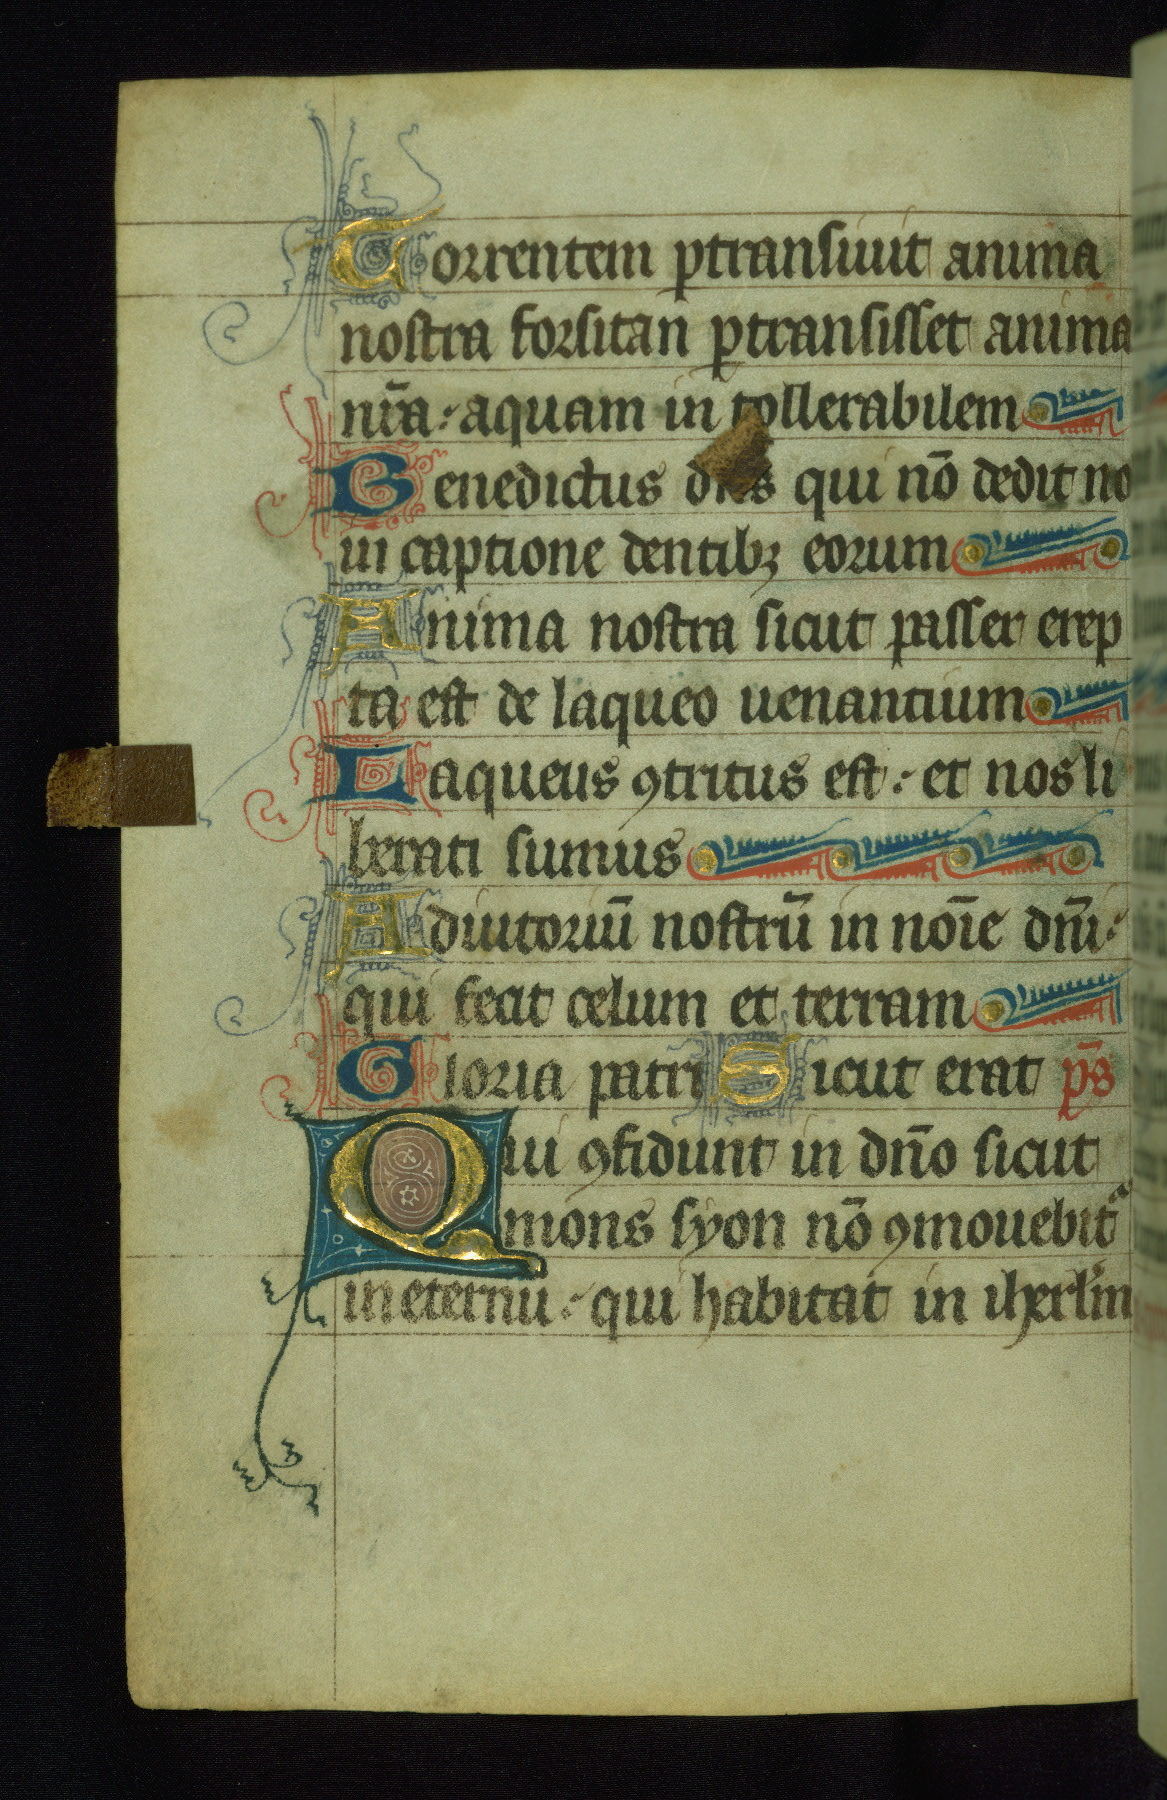 Torrentem ꝑtransiuit anima
nostra forsitan ꝑtransisset anima
nr̄a : aquam in tollerabilem
Benedictus dn̄s qui nō dedit no
in captione dentibꝫ eorum
Anima nostra sicut passer erep
ta est de laqueo uenantium
Laqueus ꝯtritus est : et nos li
berati sumus
Adiutoriū nostrū in noīe dn̄i :
qui fecit celum et terram
Gloria patri Sicut erat ps̄
Qui ꝯfidunt in dn̄o sicut
mons syon nō ꝯmouebit᷒
in eternū : qui habitat in iherl̄m